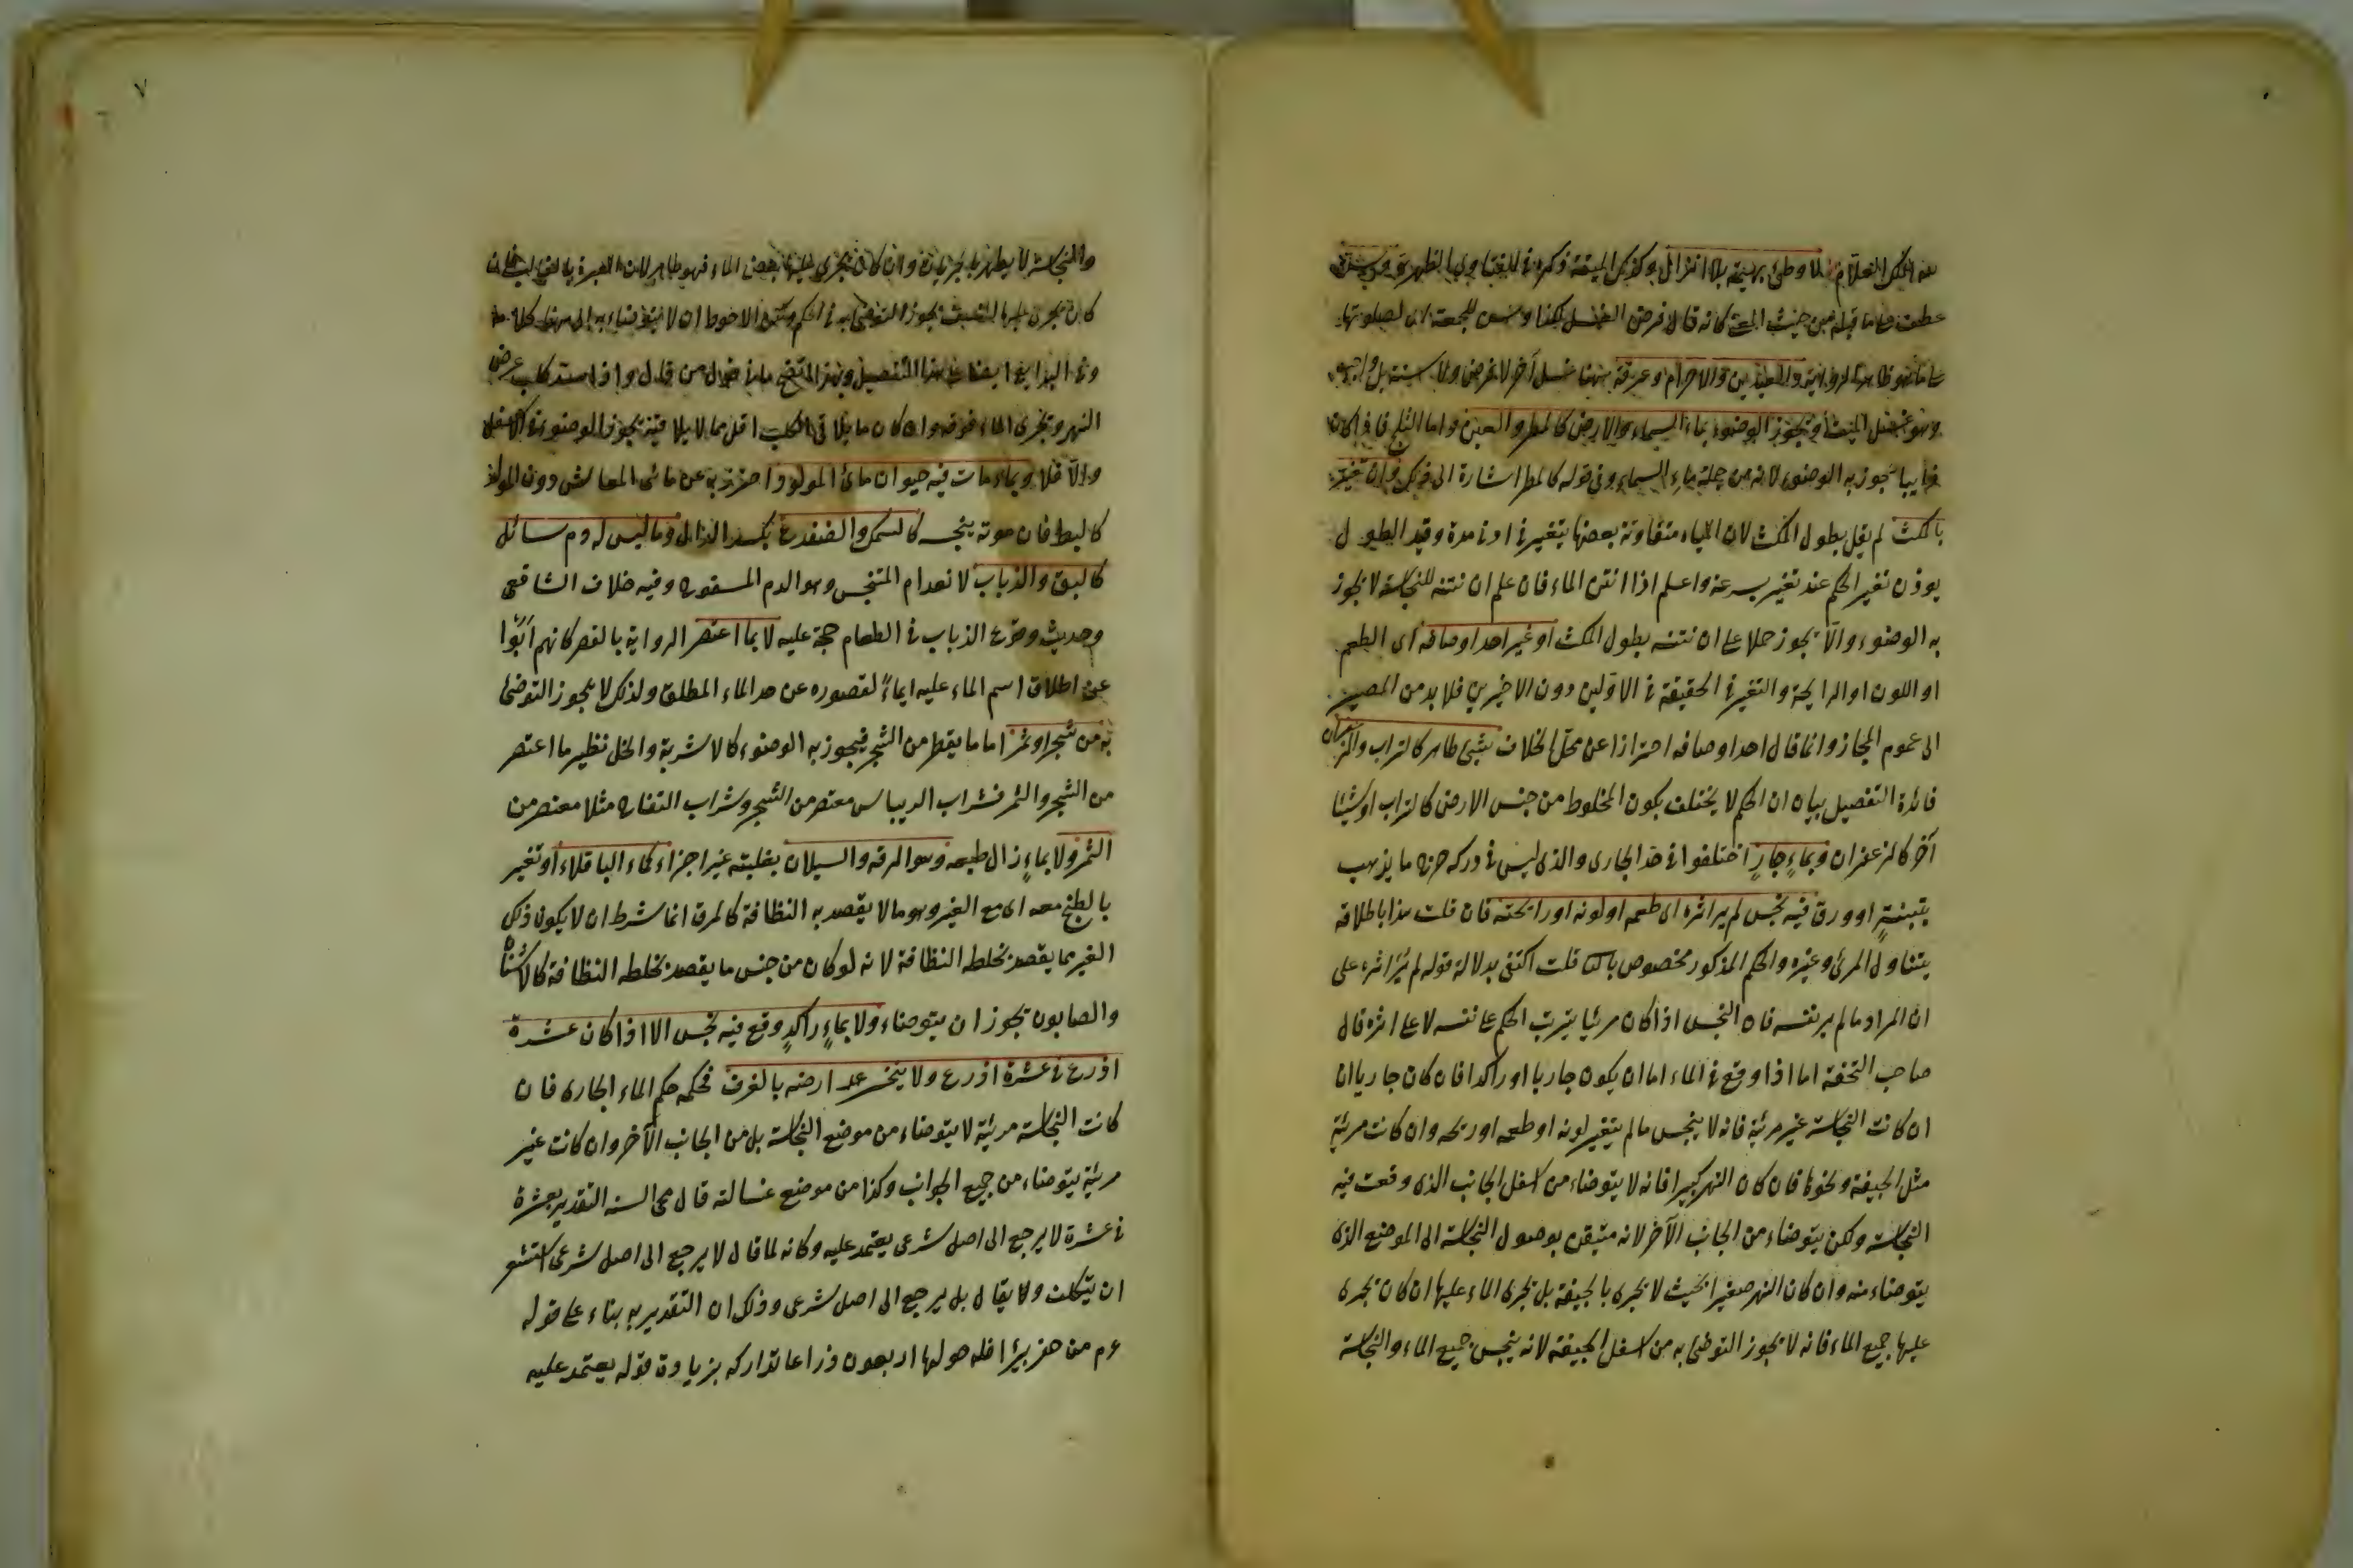 لا وطئ بهيمة بلا انزال وكذلك الميتة ذكره في
عطف على ما قبله من حيث المعنى كانه قال فرض الغسل لكذا وسن للجمعة اى لصلوتها
والعيدين والاحرام وعرفة وههنا غسل آخر لا فرض ولا سنة بل واجب
وهو غسل الميت ويجوز الوضوء بماء السماء والارض كالمطر والعين واما الثلج فاذا كان
ذايبا يجوز به الوضوء لانه من جملة ماء السماء وفى قوله كالمطر اشارة الى ذلك وان تغير
بالمكث لم يقل بطول المكث لان المياه متفاوتة بعضها يتغير فى ادنى مدة وقيد الطول
يوذن تغير الحكم عند تغير بسرعة واعلم اذا انتن الماء فان علم ان نتنه للنجاسة لا يجوز
به الوضوء والا يجوز حملا على ان نتنه بطول المكث او غير احد اوصافه اى الطعم
او اللون او الرايحة والتغير فى الحقيقة فى الاولين دون الاخيرين فلا بد من المصير
الى عموم المجاز وانما قال احد اوصافه احترازا عن محل الخلاف بشئ طاهر كالتراب والزعفران
فائدة التفصيل بيان ان الحكم لا يختلف بكون المخلوط من جنس الارض كالتراب او شيئا
آخر كالزعفران وبماءٍ جارٍ اختلفوا فى حد الجارى والذى ليس فى دركه حرج ما يذهب
بتبنةٍ او ورق فيه نجس لم ير اثره اى طعمه او لونه او رايحته فان قلت هذا باطلاقه
يتناول المرئ وغيره والحكم المذكور مخصوص قلت اكتفى بدلالة قوله لم يُرَ اثره على
ان المراد ما لم ير نفسه فان النجس اذا كان مرئيا يترتب الحكم على نفسه لا على اثره قال
صاحب التحفة اما اذا وقع فى الماء اما ان يكون جاريا او راكدا فان كان جاريا ان
ان كانت النجاسة غير مرئية فانه لا ينجس ما لم يتغير لونه او طعمه او ريحه وان كانت مرئية
مثل الجيفة ونحوها فان كان النهر كبيرا فانه لا يتوضاء من اسفل الجانب الذى وقعت فيه
النجاسة ولكن يتوضاء من الجانب الآخر لانه متيقن بوصول النجاسة الى الموضع الذى
يتوضاء منه وان كان النهر صغيرا بحيث لا يجرى بالجيفة بل يجرى الماء عليها ان كان يجرى
عليها جميع الماء فانه لا يجوز التوضئ به من اسفل الجيفة لانه ينجس جميع الماء والنجاسة
٧
والنجاسة لا يطهر بالجريان وان كان يجرى عليها بعض الماء فهو طاهر لان العبرة للغالب فان
كان يجرى عليها النصف يجوز التوضئ به فى الحكم ولكن الاحوط ان لا يتوضاء به الى هنا كلامه
وفى البدايع ايضا هذا التفصيل وبهذا اتضح ما فى قول من قال واذا سد كلب عرض
النهر ويجرى الماء فوقه ان كان ما يلاقى الكلب اقل مما لا يلاقيه يجوز الوضوء فى الاسفل
والا فلا وبماء مات فيه حيوان مائى المولد احترز به عن مائى المعاش دون المولد
كالبط فان موته ينجسه كالسمك والضفدع بكسر الدال وما ليس له دم سائل
كالبق والذباب لانعدام المنجس وهو الدم المسفوح وفيه خلاف الشافعى
وحديث وقوع الذباب فى الطعام حجة عليه لا بما اعتصر الرواية بالقصر كانهم ابوا
عن اطلاق اسم الماء عليه ايماءً لقصوره عن حد الماء المطلق ولذلك لا يجوز التوضئ
به من شجر او ثمر اما ما يقطر من الشجر فيجوز به الوضوء كالاشربة والخل نظير ما اعتصر
من الشجر والثمر فشراب الريباس معتصر من الشجر وشراب التفاح مثلا معتصر من
الثمر ولا بماءٍ زال طبعه وهو الرقة والسيلان بغلبة غير اجزاء كماء الباقلاء او تغير
بالطبخ معه اى مع الغير وهو ما لا يقصد به النظافة كالمرق انما شرط ان لا يكون ذلك
الغير مما يقصد بخلطه النظافة لانه لو كان من جنس ما يقصد بخلطه النظافة كالاشنان
والصابون يجوز ان يتوضاء ولا بماءٍ راكدٍ وقع فيه نجس الا اذا كان عشرة
اذرع فى عشرة اذرع ولا ينحسر ارضه بالغرف فحكمه حكم الماء الجارى فان
كانت النجاسة مرئية لا يتوضاء من موضع النجاسة بل من الجانب الآخر وان كانت غير
مرئية يتوضاء من جميع الجوانب وكذا من موضع غسالته قال محى السنة التقدير بعشرة
فى عشرة لا يرجع الى اصل شرعى يعتمد عليه وكانه لما قال لا يرجع الى اصل شرعى استشعر
ان يتكلف ولا يقال بل يرجع الى اصل شرعى وذلك ان التقدير به بناء على قوله
عم من حفر بيرا فله حولها اربعون ذراعا تداركه بزيادة قوله يعتمد عليه